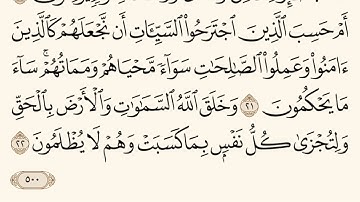 أَمْ حَسِبَ ٱلَّذِينَ ٱجْتَرَحُوا۟ ٱلسَّيِّـَٔاتِ أَن نَّجْعَلَهُمْ كَٱلَّذِينَ
ءَامَنُوا۟ وَعَمِلُوا۟ ٱلصَّـٰلِحَـٰتِ سَوَآءً مَّحْيَاهُمْ وَمَمَاتُهُمْ ۚ سَآءَ
مَا يَحْكُمُونَ ٢١ وَخَلَقَ ٱللَّهُ ٱلسَّمَـٰوَٰتِ وَٱلْأَرْضَ بِٱلْحَقِّ
وَلِتُجْزَىٰ كُلُّ نَفْسٍۭ بِمَا كَسَبَتْ وَهُمْ لَا يُظْلَمُونَ ٢٢
٥٠٠